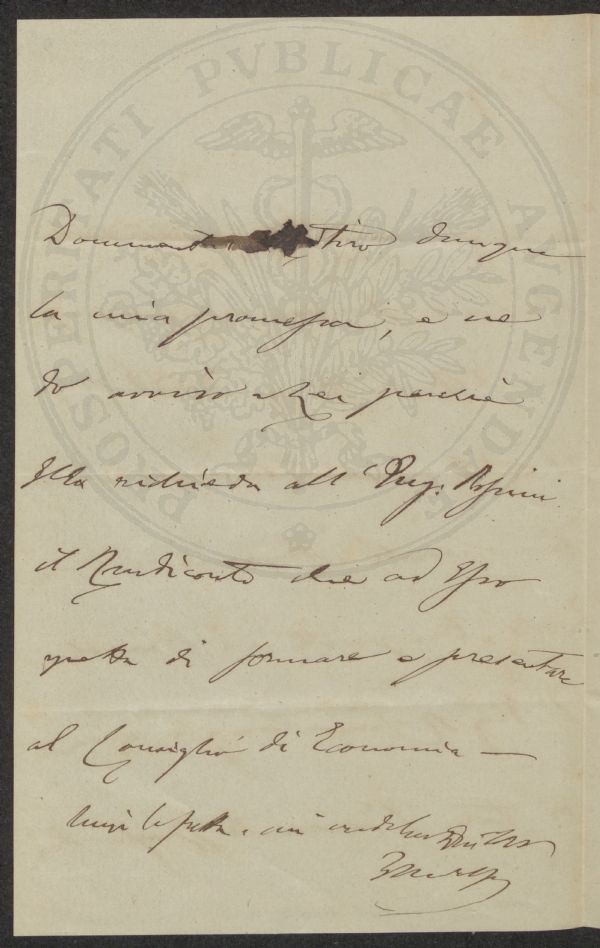 PROSPERITATI PVBLICAE AVGENDAE
Document tiro dunque
la mia promessa, e ne
do avviso a Lei perchè
Ella richieda all' Ing.
il Rendiconto che ad Esso
spetta di formare e presentare
al Consiglio di Economia —
mi